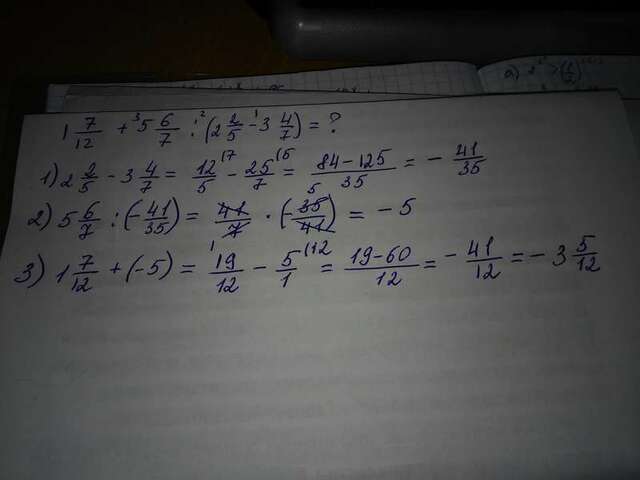 1 7/12 + ³5 6/7 :² (2 2/5 -¹ 3 4/7) = ?
1) 2 2/5 - 3 4/7 = 12/5 (7 - 25/7 (5 = 84-125/35 = - 41/35
2) 5 6/7 : (- 41/35) = 41/7 · (- 35/41) = - 5
3) 1 7/12 + (-5) = 19/12 - 5/1 (12 = 19-60/12 = - 41/12 = - 3 5/12